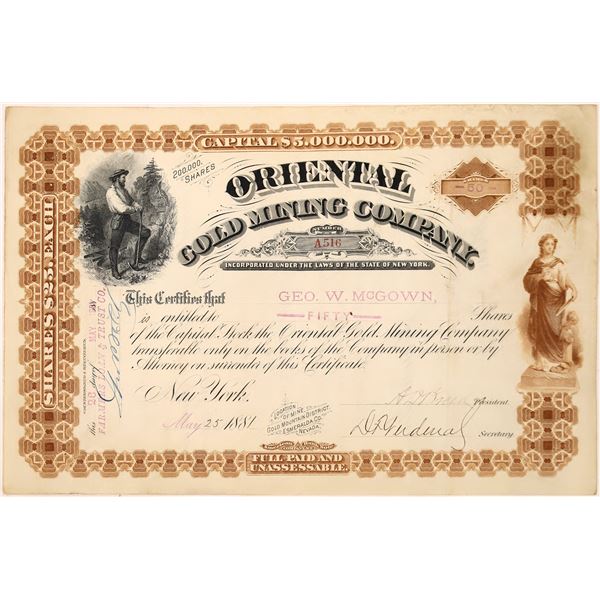 CAPITAL $5,000,000.
200,000. SHARES
ORIENTAL
GOLD MINING COMPANY.
SHARES
50
NUMBER
A516
INCORPORATED UNDER THE LAWS OF THE STATE OF NEW YORK.
This Certifies that GEO. W. McGOWN,
is entitled to FIFTY Shares
of the Capital Stock the Oriental Gold Mining Company
transferable only on the books of the Company in person or by
Attorney on surrender of this Certificate.
New York.
May 25 1881.
LOCATION
OF MINE,
GOLD MOUNTAIN DISTRICT,
ESMERALDA CO.
NEVADA.
President.
Secretary
FULL PAID AND
UNASSESSABLE.
SHARES $25. EACH
this 26 day of MAY
FARMERS LOAN & TRUST CO.